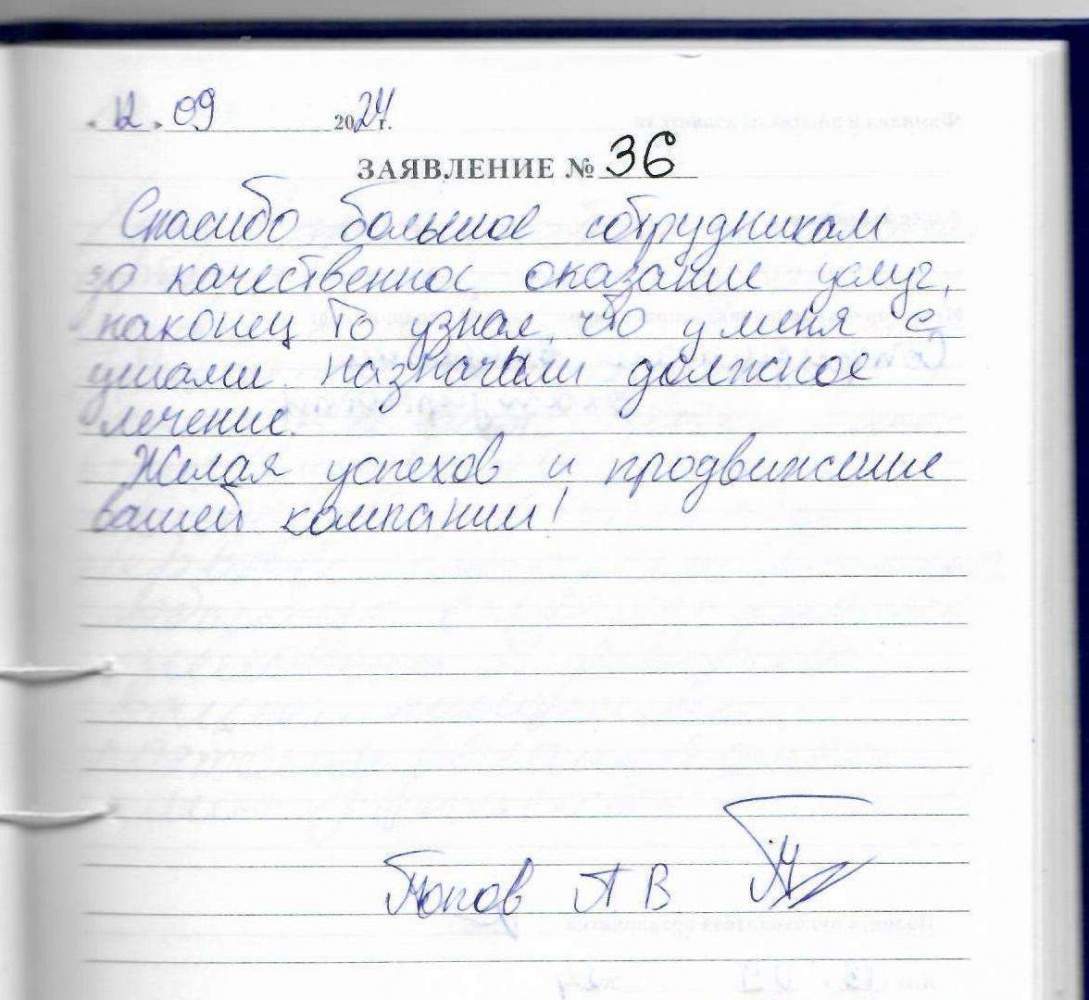 12. 09 2024 г.
ЗАЯВЛЕНИЕ № 36
Спасибо большое сотрудникам
за качественное оказание услуг,
наконец то узнал, что у меня с
ушами. Назначили должное
лечение.
Желая успехов и продвижение
вашей компании!
Попов А В